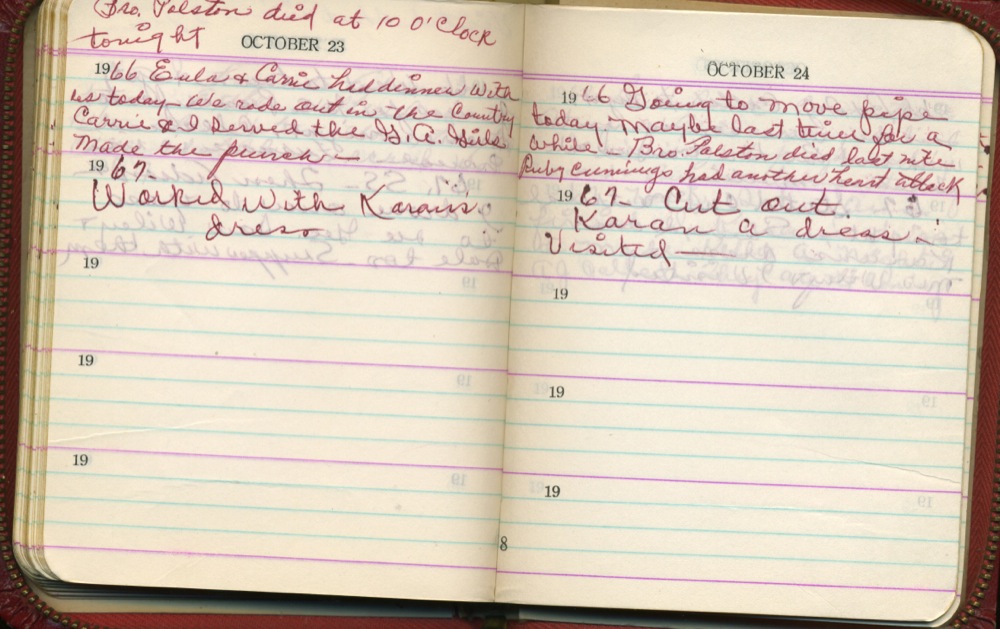 Bro. Polston died at 10 O'Clock
tonight
OCTOBER 23
1966 Eula & Carrie had dinner with
us today - We rode out in the Country
Carrie & I Served the G. A. Girls
Made the punch -
1967-
Worked with Karan's
dress
19
19
19
OCTOBER 24
1966 Going to move pipe
today. Maybe last time for a
while - Bro. Polston died last nite
Ruby Cummings had another heart attack
1967- Cut out
Karan a dress -
Visited -
19
19
19
8